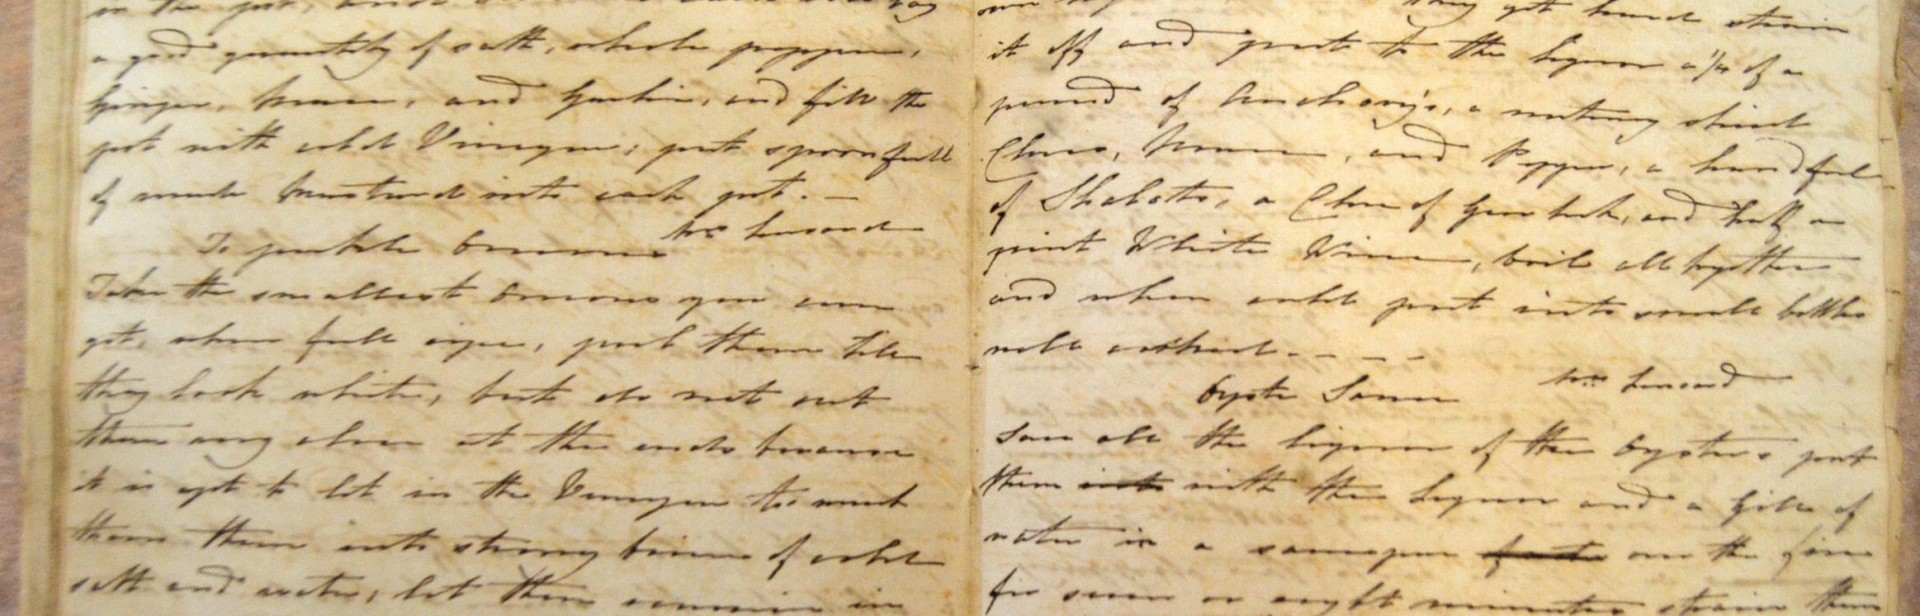 a good quantity of salt, whole pepper,
Ginger, Mace, and Garlic, and fill the
pot with cold Vinegar; put spoonfull
of made Mustard into each pot. —
To pickle Onions Mrs
Take the smallest Onions you can
get, when full ripe, peel them till
they look white, but do not cut
them any close at the ends because
it is apt to let in the Vinegar too much
throw them into strong brine of cold
salt and water, let them remain in
strain
it off and put to the liquor a 1/4 of a
pound of Anchovy's, a nutmeg sliced
Cloves, Mace, and Pepper, a handful
of Shalots, a Clove of Garlick, and half a
pint White Wine, boil all together
and when cold put into small bottles
well corked - - - -
Oyster Sauce Mrs
Save all the liquor of the Oysters put
them into with the Liquor and a Gill of
water in a saucepan on the fire
for seven or eight minutes strain the